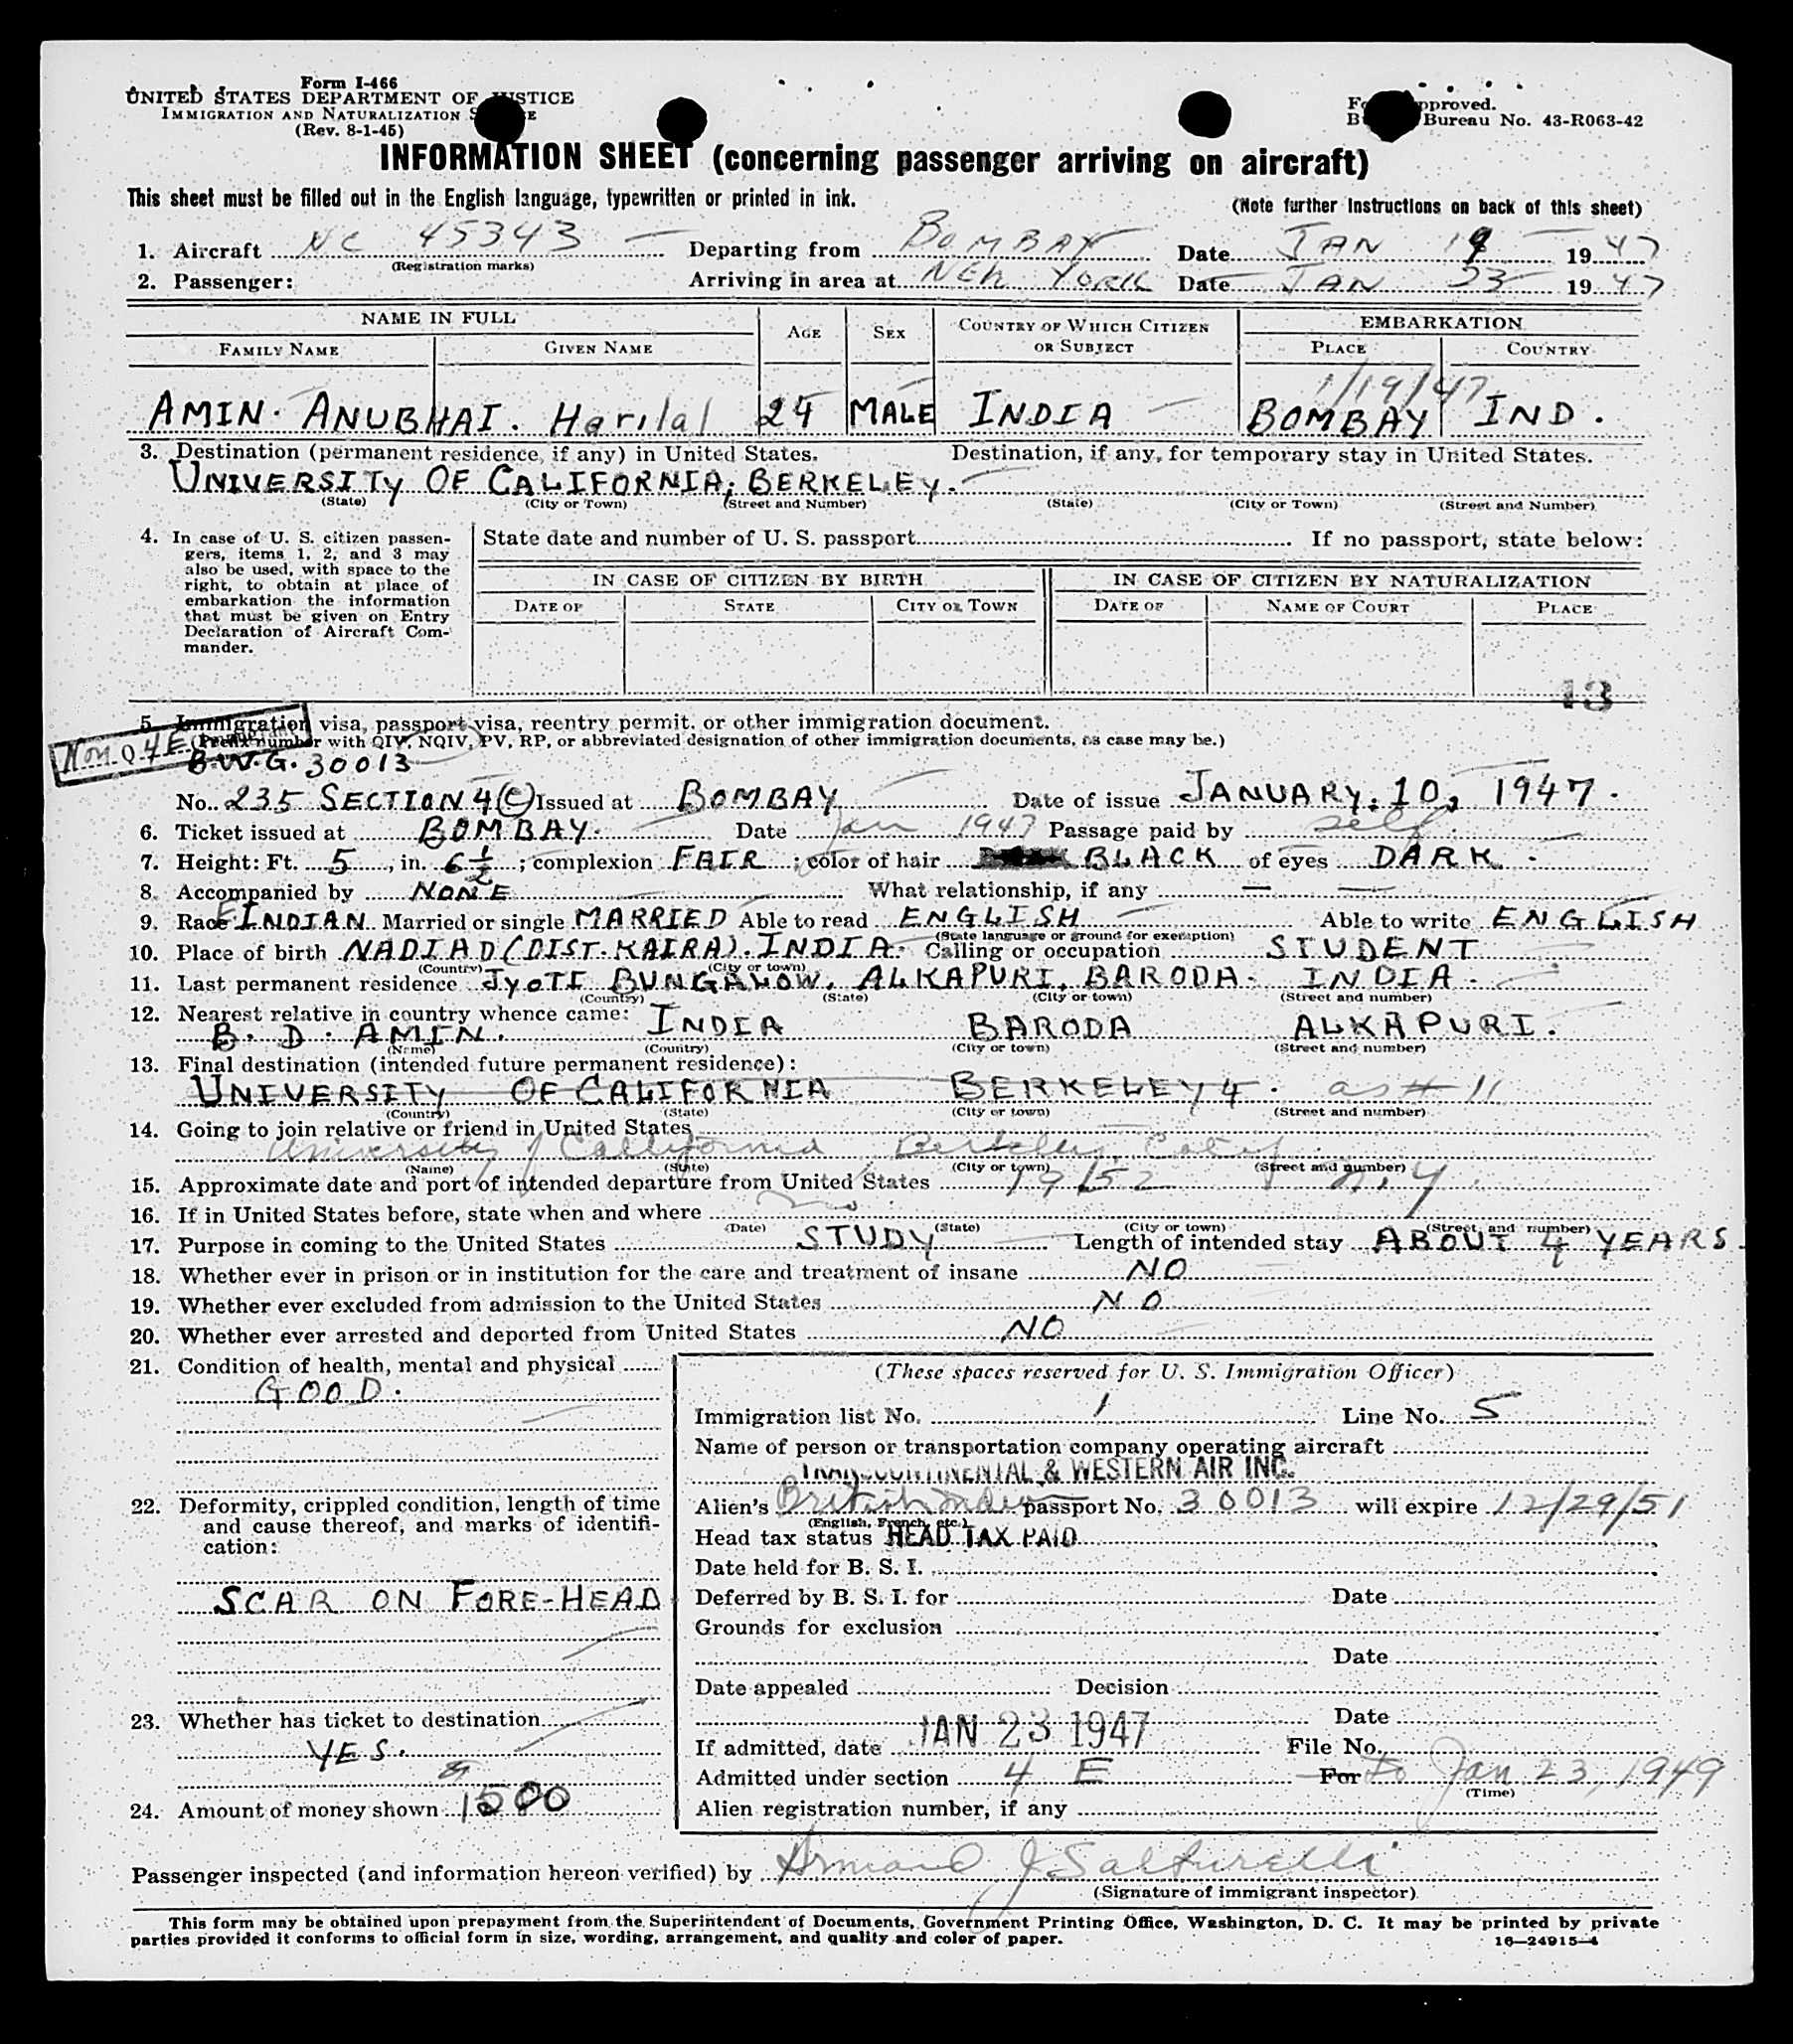 Form I-466
UNITED STATES DEPARTMENT OF JUSTICE
IMMIGRATION AND NATURALIZATION S E
(Rev. 8-1-45)
Fo pproved.
B Bureau No. 43-R063-42
INFORMATION SHEET (concerning passenger arriving on aircraft)
This sheet must be filled out in the English language, typewritten or printed in ink.
(Note further instructions on back of this sheet)
1. Aircraft NC 45343 Departing from BOMBAY Date JAN 19 1947
(Registration marks)
2. Passenger: Arriving in area at NEW YORK Date JAN 23 1947
NAME IN FULL AGE SEX COUNTRY OF WHICH CITIZEN OR SUBJECT EMBARKATION
FAMILY NAME GIVEN NAME PLACE COUNTRY
1/19/47
AMIN. ANUBHAI. Harilal 24 MALE INDIA BOMBAY IND.
3. Destination (permanent residence, if any) in United States. Destination, if any, for temporary stay in United States.
UNIVERSITY OF CALIFORNIA; BERKELEY.
(State) (City or Town) (Street and Number) (State) (City or Town) (Street and Number)
4. In case of U. S. citizen passen-
gers, items 1, 2, and 3 may
also be used, with space to the
right, to obtain at place of
embarkation the information
that must be given on Entry
Declaration of Aircraft Com-
mander.
State date and number of U. S. passport If no passport, state below:
IN CASE OF CITIZEN BY BIRTH IN CASE OF CITIZEN BY NATURALIZATION
DATE OF STATE CITY OR TOWN DATE OF NAME OF COURT PLACE
13
5. Immigration visa, passport visa, reentry permit, or other immigration document.
(Prefix number with QIV, NQIV, PV, RP, or abbreviated designation of other immigration documents, as case may be.)
Non Q 4E
B.W.G. 30013
No. 235 SECTION 4(C) Issued at BOMBAY Date of issue JANUARY. 10, 1947.
6. Ticket issued at BOMBAY. Date Jan 1947 Passage paid by self
7. Height: Ft. 5, in. 6 1/2; complexion FAIR; color of hair BLACK of eyes DARK.
8. Accompanied by NONE What relationship, if any —
9. Race E INDIAN Married or single MARRIED Able to read ENGLISH Able to write ENGLISH
(State language or ground for exemption)
10. Place of birth NADIAD (DIST. KAIRA). INDIA. Calling or occupation STUDENT
(Country) (City or town)
11. Last permanent residence JYOTI BUNGALOW, ALKAPURI, BARODA. INDIA.
(Country) (State) (City or town) (Street and number)
12. Nearest relative in country whence came:
B. D. AMIN. INDIA BARODA ALKAPURI.
(Name) (Country) (City or town) (Street and number)
13. Final destination (intended future permanent residence):
UNIVERSITY OF CALIFORNIA BERKELEY 4. as # 11
(Country) (State) (City or town) (Street and number)
14. Going to join relative or friend in United States
University of California Berkeley,
(Name) (State) (City or town) (Street and number)
15. Approximate date and port of intended departure from United States 1952 N.Y.
16. If in United States before, state when and where
(Date) (State) (City or town) (Street and number)
17. Purpose in coming to the United States STUDY Length of intended stay ABOUT 4 YEARS.
18. Whether ever in prison or in institution for the care and treatment of insane NO
19. Whether ever excluded from admission to the United States NO
20. Whether ever arrested and deported from United States NO
21. Condition of health, mental and physical
GOOD.
22. Deformity, crippled condition, length of time
and cause thereof, and marks of identifi-
cation:
SCAR ON FORE-HEAD
23. Whether has ticket to destination
YES.
24. Amount of money shown 1500
(These spaces reserved for U. S. Immigration Officer)
Immigration list No. 1 Line No. 5
Name of person or transportation company operating aircraft
TRANSCONTINENTAL & WESTERN AIR INC.
Alien's British Indian passport No. 30013 will expire 12/29/51
(English, French, etc.)
Head tax status HEAD TAX PAID
Date held for B. S. I.
Deferred by B. S. I. for Date
Grounds for exclusion
Date
Date appealed Decision
Date
If admitted, date JAN 23 1947 File No.
Admitted under section 4 E For to Jan 23, 1949
(Time)
Alien registration number, if any
Passenger inspected (and information hereon verified) by Armand J Salturelli
(Signature of immigrant inspector)
This form may be obtained upon prepayment from the Superintendent of Documents, Government Printing Office, Washington, D. C. It may be printed by private
parties provided it conforms to official form in size, wording, arrangement, and quality and color of paper.
16—24915-4